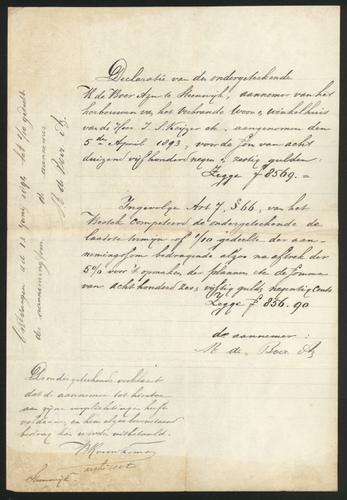 Declaratie van den ondergeteekende
M de Boer Azn te Steenwijk, aannemer van het
herbouwen van het Verbrande Woon & Winkelhuis
van de Heer J. S. Keijzer ald, aangenomen den
5den April 1893, voor de som van acht
duizend vijfhonderd negen & zestig gulden.
Zegge f 8569.=
Ingevolge Art 7, § 66, van het
Bestek competeere de ondergeteekende de
laatste termijn of 1/10 gedeelte der aan-
nemingssom bedragende alzoo na aftrek der
5% voor 't opmaken der plannen etc de somma
van acht honderd zes & vijftig guld & negentig Cents
Zegge f 856.90
de aannemer:
M de Boer Az
De ondergeteekende verklaart
dat de aannemer tot hiertoe
aan zijne verplichtingen heeft
voldaan en hem alzoo bovenstaand
bedrag kan worden uitbetaald.
architect
Steenwijk
Ontvangen den 22 Juni 1894 het 1/10 gedeelte
der aannemingssom
de aannemer
M de Boer Az